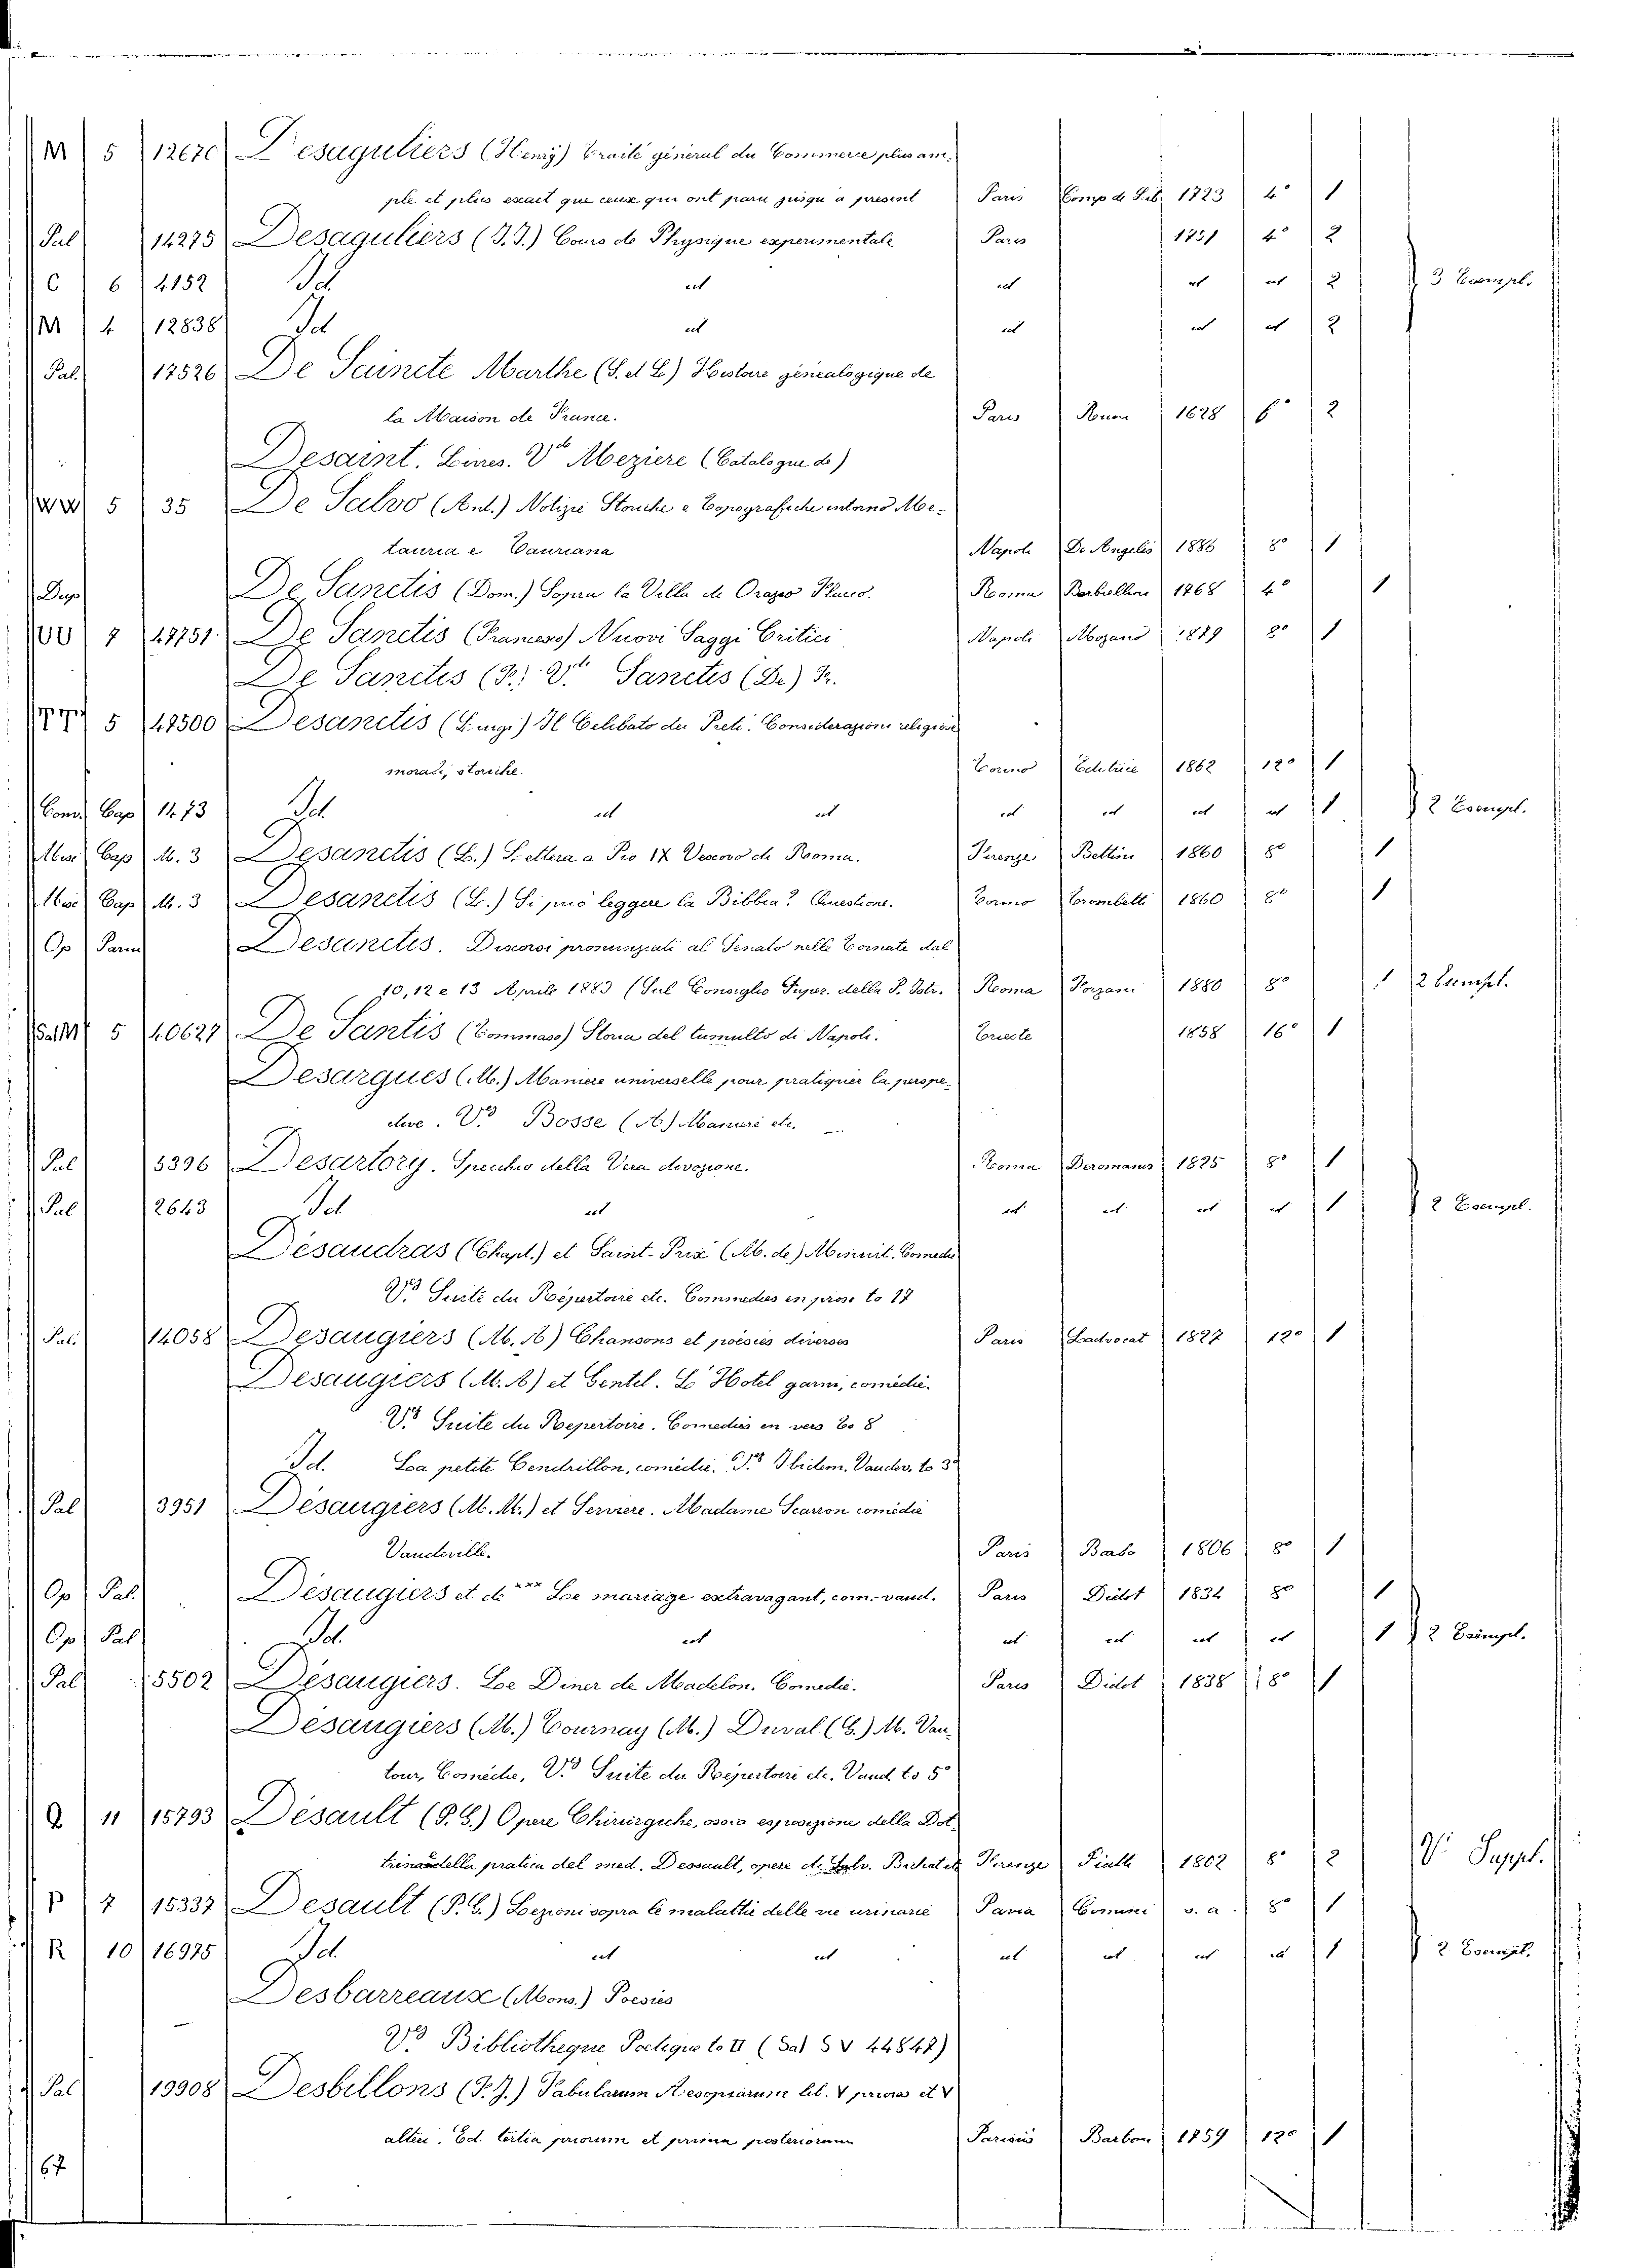 M 5 12670 Desaguliers (Henry) Traité général du Commerce plus am-
ple et plus exact que ceux qui ont paru jusqu'a present Paris Comp de Lib 1723 4° 1
Pal 14275 Desaguliers (J.J.) Cours de Physique experimentale Paris 1751 4° 2
C 6 4152 Id. id id id id 2 3 Esempl.
M 4 12838 Id id id id id 2
Pal. 17526 De Saincte Marthe (S. et L.) Histoire généalogique de
la Maison de France. Paris 1628 f° 2
Desaint. Livres. V° Meziere (Catalogue de)
5 35 De Salvo (Ant.) Notizie Storiche e Topografiche intorno Me-
tauria e Tauriana Napoli De Angelis 1886 8° 1
Dup De Sanctis (Dom.) Sopra la Villa di Orazio Flacco. Rooma Barbiellini 1768 4° 1
7 48751 De Sanctis (Francesco) Nuovi Saggi Critici Napoli Morano 1879 8° 1
De Sanctis (F.) V° Sanctis (De) F.
5 47500 Desanctis (Luigi) Il Celibato dei Preti. Considerazioni religiose,
morali, storiche. Torino Editrice 1862 12° 1
Com. Cap 14.73 Id. id id id id id id 1 2 Esempl.
Misc Cap M. 3 Desanctis (L.) Lettera a Pio IX Vescovo di Rooma. Firenze Bettini 1860 8° 1
Misc Cap M. 3 Desanctis (L.) Si può leggere la Bibbia? Questione. Torino Trombetti 1860 8° 1
Op Parm Desanctis. Discorsi pronunziati al Senato nelle Tornate dal
10, 12 e 13 Aprile 1883 (Sul Consiglio Super. della P. Istr. Rooma Forzani 1880 8° 1 2 Esempl.
5 40627 De Santis (Tommaso) Storia del tumulto di Napoli. Trieste 1858 16° 1
Desargues (M.) Maniere universelle pour pratiquer la perspe-
ctive. V° Bosse (A.) Maniere etc.
Pal 5396 Desartory. Specchio della Vera divozione. Rooma Deromanis 1825 8° 1
Pal 2643 Id id id id id id 1 2 Esempl.
Désaudras (Chapt.) et Saint-Prix (M. de) Minuit. Comedie
V° Suite du Répertoire etc. Commedies en prose to 17
Pal. 14058 Desaugiers (M. A) Chansons et poésies diverses Paris Ladvocat 1827 12° 1
Desaugiers (M. A) et Gentil. L'Hotel garni, comédie.
V° Suite du Repertoire. Comedies en vers To 8
Id. La petite Cendrillon, comédie. V° Ibidem. Vaudev. to 3°
Pal 3951 Désaugiers (M. M.) et Serviere. Madame Scarron comédie
Vaudeville. Paris Barba 1806 8° 1
Op Pal. Désaugiers et de *** Le mariage extravagant, com.-vaud. Paris Didot 1834 8° 1
Op Pal Id. id id id id id 1 2 Esempl.
Pal 5502 Désaugiers. Le Diner de Madelon. Comedie. Paris Didot 1838 18° 1
Désaugiers (M.) Tournay (M.) Duval (G.) M. Vau-
tour, Comédie, V° Suite du Répertoire etc. Vaud. to 5°
Q 11 15793 Désault (P. G.) Opere Chirurgiche, ossia esposizione della Dot-
trina della pratica del med. Dessault, opere di Bichat etc Firenze Piatti 1802 8° 2 V° Suppl.
P 7 15337 Desault (P. G.) Lezioni sopra le malattie delle vie urinarie Pavia Comini s. a. 8° 1
R 10 16975 Id. id id id id id id 1 2 Esempl.
Desbarreaux (Mons.) Poesies
V° Bibliotheque Poetique to II (Sal 5 V 44847)
Pal 19908 Desbillons (F.J.) Fabularum Aesopiarum lib. V priores et V
alteri. Ed. tertia priorum et prima posteriorum Parisiis Barbou 1759 12° 1
67